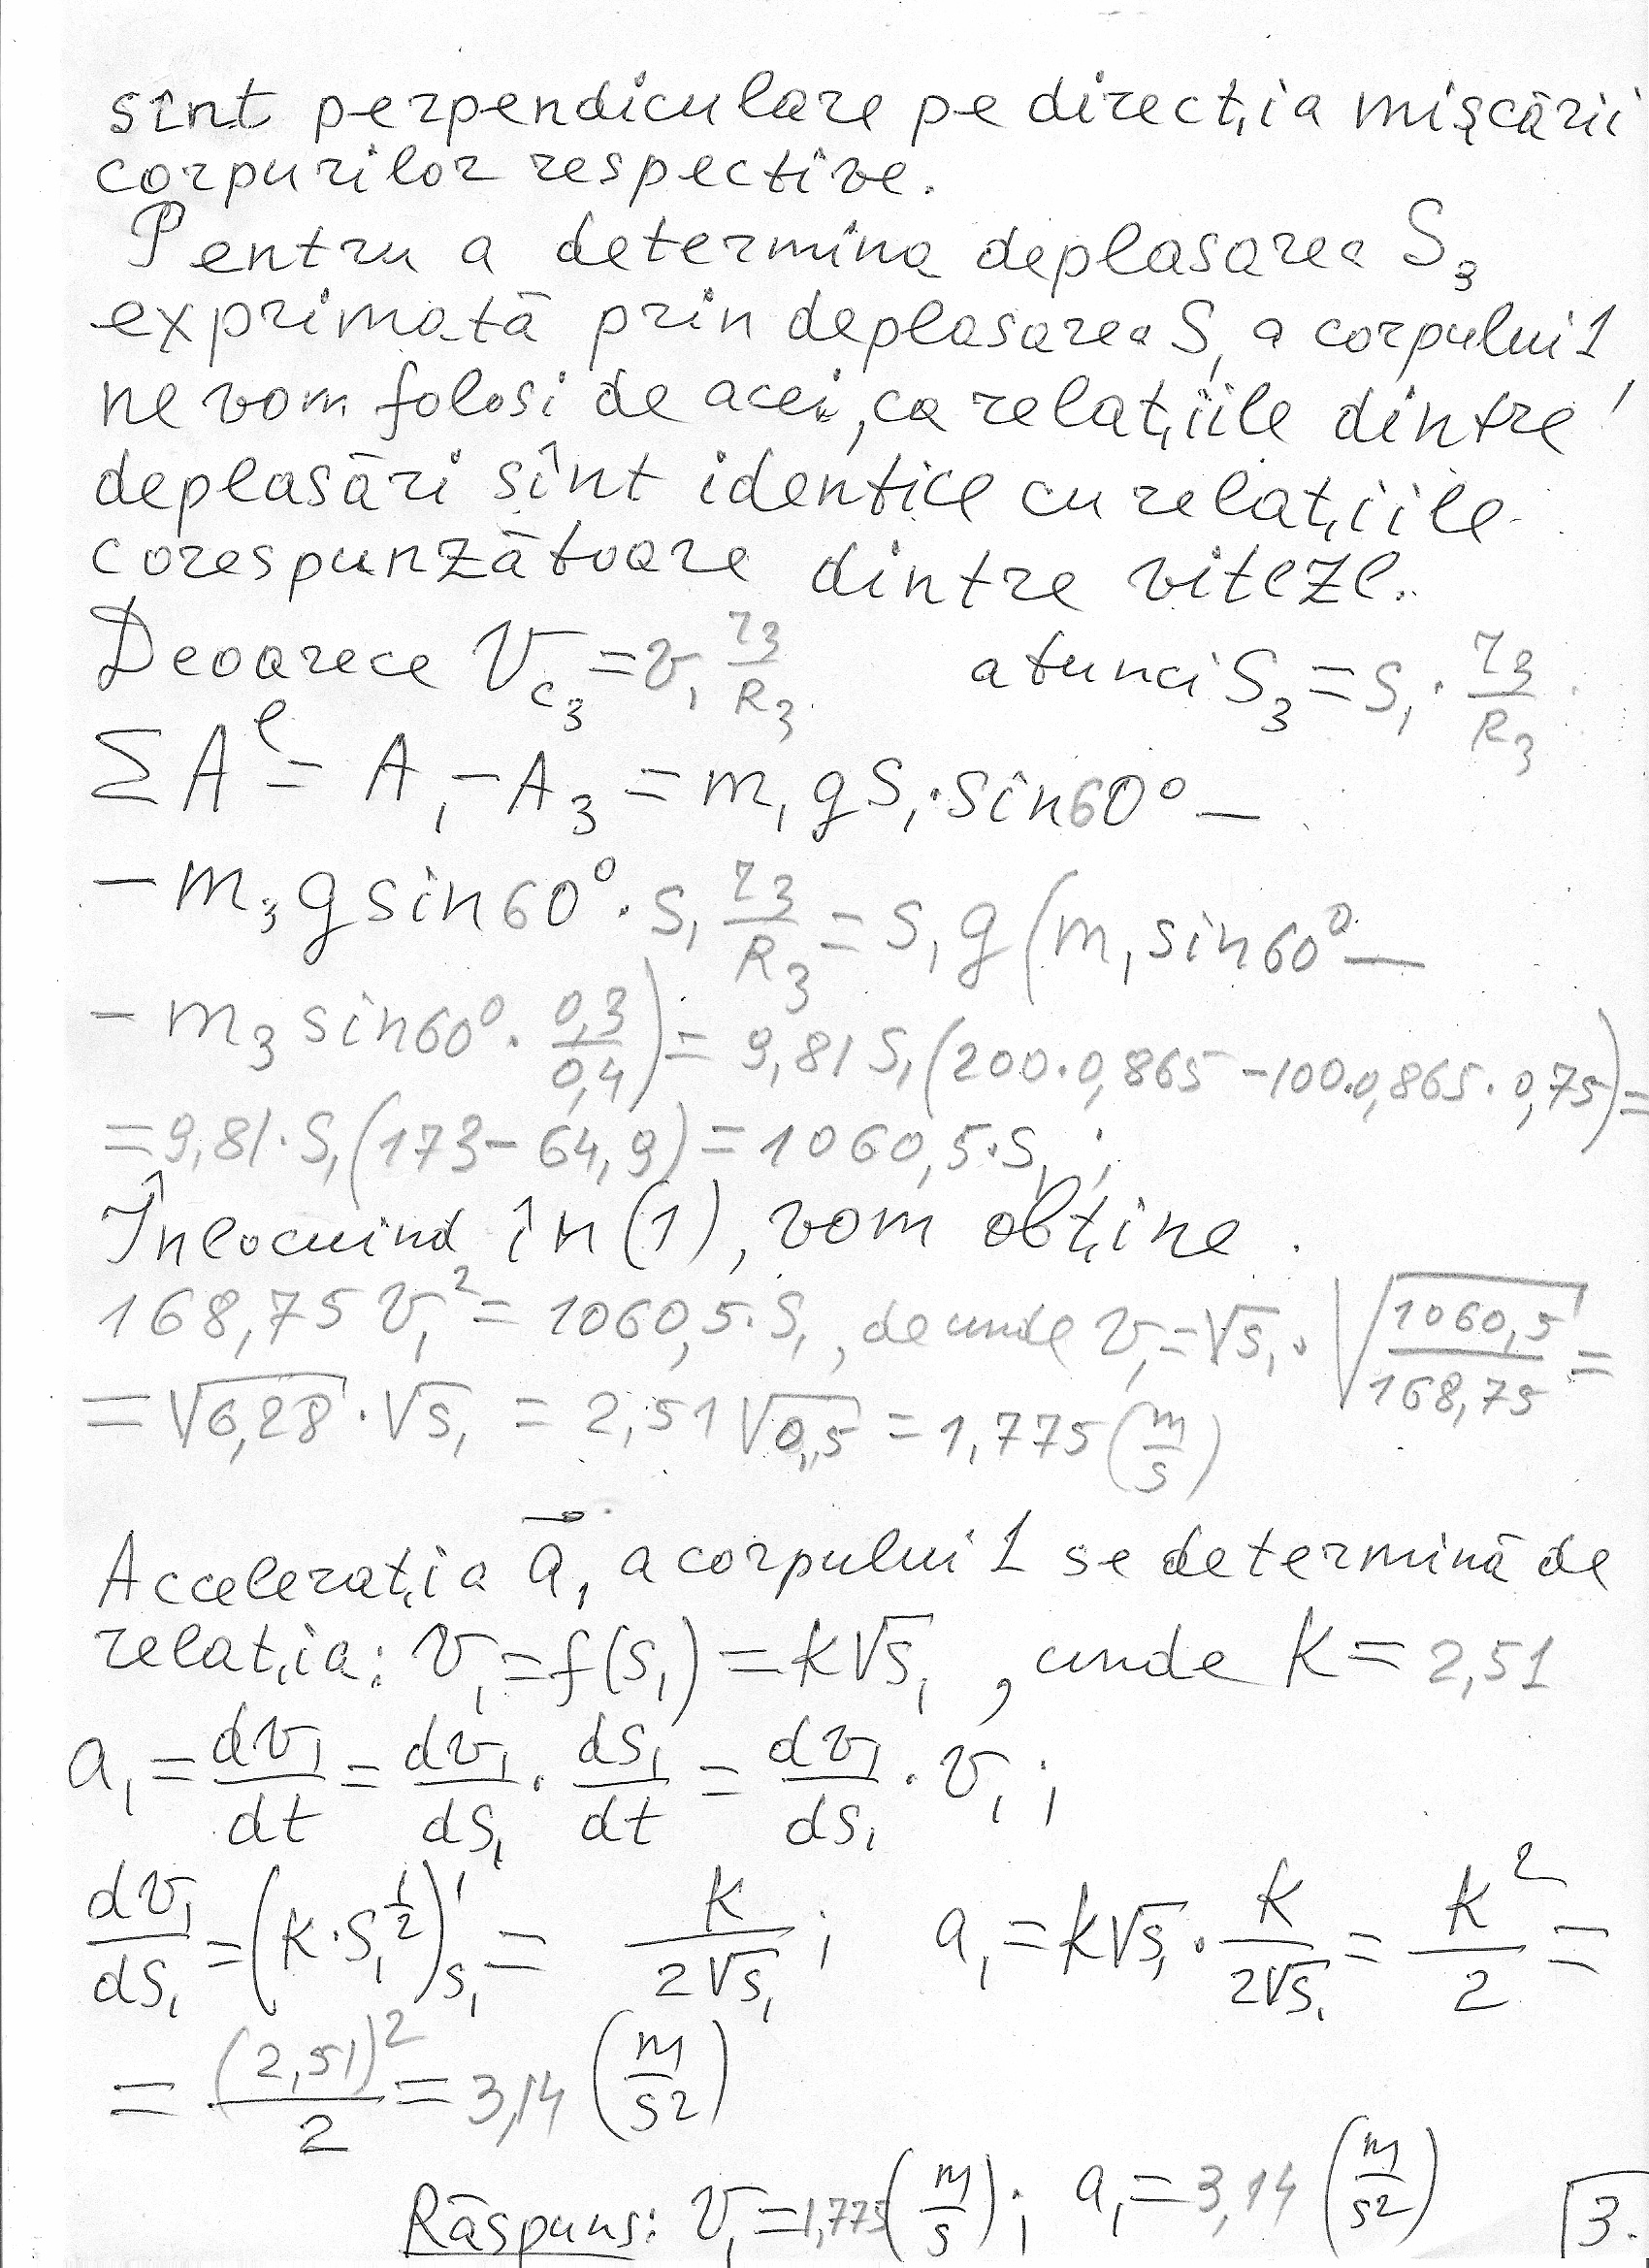 sînt perpendiculare pe direcția mișcării
corpurilor respective.
Pentru a determina deplasarea S₃
exprimată prin deplasarea S₁ a corpului 1,
ne vom folosi de acei, ca relațiile dintre
deplasări sînt identice cu relațiile
corespunzătoare dintre viteze.
Deoarece V_c₃ = v₁ r₃/R₃ atunci S₃ = S₁ · r₃/R₃
ΣAᵉ = A₁ - A₃ = m₁gS₁·sin60° -
- m₃g sin60° · S₁ r₃/R₃ = S₁g(m₁ sin60° -
- m₃ sin60° · 0,3/0,4) = 9,81 S₁(200·0,865 - 100·0,865·0,75) =
= 9,81·S₁(173 - 64,9) = 1060,5·S₁;
Înlocuind în (1), vom obține.
168,75 v₁² = 1060,5·S₁, de unde v₁ = √S₁ · √(1060,5/168,75) =
= √6,28 · √S₁ = 2,51 √0,5 = 1,775 (m/s)
Accelerația a⃗₁ a corpului 1 se determină de
relația: v₁ = f(s₁) = k√s₁, unde k = 2,51
a₁ = dv₁/dt = dv₁/ds₁ · ds₁/dt = dv₁/ds₁ · v₁;
dv₁/ds₁ = (k·s₁^(1/2))'_s₁ = k/(2√s₁); a₁ = k√s₁ · k/(2√s₁) = k²/2 =
= (2,51)²/2 = 3,14 (m/s²)
Răspuns: v₁ = 1,775 (m/s); a₁ = 3,14 (m/s²) 3.